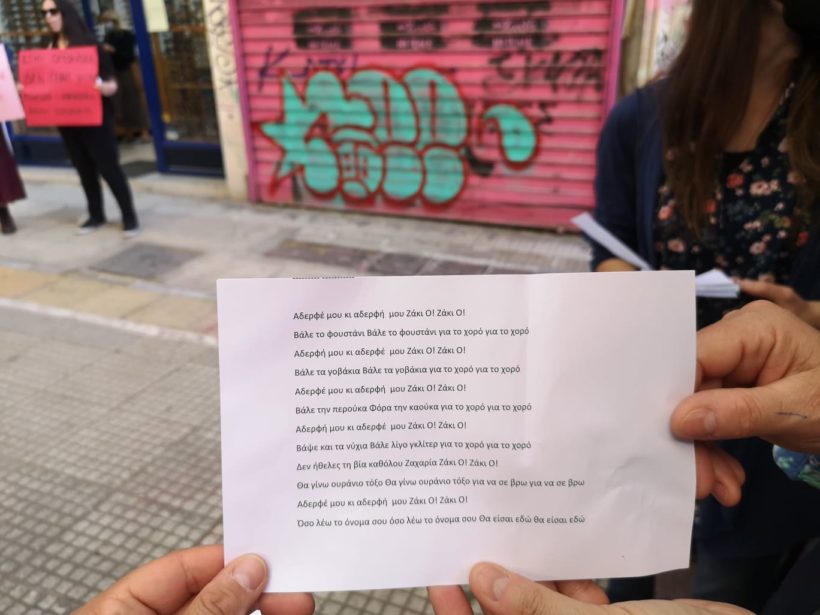 ΔΕΝ
Αδερφέ μου κι αδερφή μου Ζάκι Ο! Ζάκι Ο!
Βάλε το φουστάνι Βάλε το φουστάνι για το χορό για το χορό
Αδερφή μου κι αδερφέ μου Ζάκι Ο! Ζάκι Ο!
Βάλε τα γοβάκια Βάλε τα γοβάκια για το χορό για το χορό
Αδερφέ μου κι αδερφή μου Ζάκι Ο! Ζάκι Ο!
Βάλε την περούκα Φόρα την καούκα για το χορό για το χορό
Αδερφή μου κι αδερφέ μου Ζάκι Ο! Ζάκι Ο!
Βάψε και τα νύχια Βάλε λίγο γκλίτερ για το χορό για το χορό
Δεν ήθελες τη βία καθόλου Ζαχαρία Ζάκι Ο! Ζάκι Ο!
Θα γίνω ουράνιο τόξο Θα γίνω ουράνιο τόξο για να σε βρω για να σε βρω
Αδερφέ μου κι αδερφή μου Ζάκι Ο! Ζάκι Ο!
Όσο λέω το όνομα σου όσο λέω το όνομα σου Θα είσαι εδώ θα είσαι εδώ